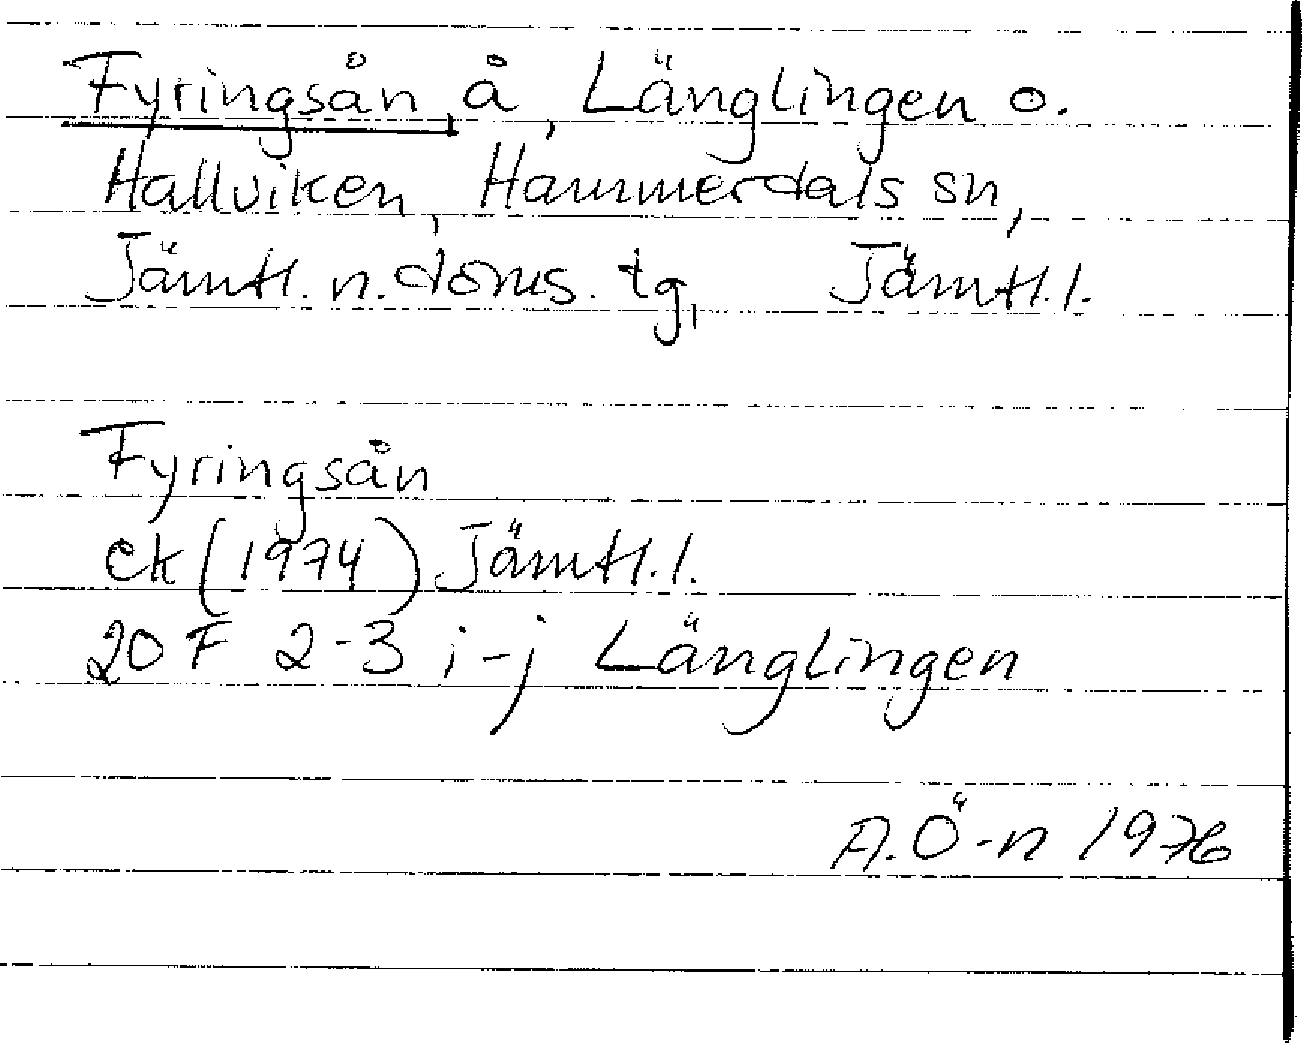 Fyringsån, å, Länglingen o.
Hallviken, Hammerdals sn,
Jämtl. n. doms. tg, Jämtl. l.
Fyringsån
ek (1974) Jämtl. l.
20 F 2-3 i-j Länglingen
A. Ö-n 1976